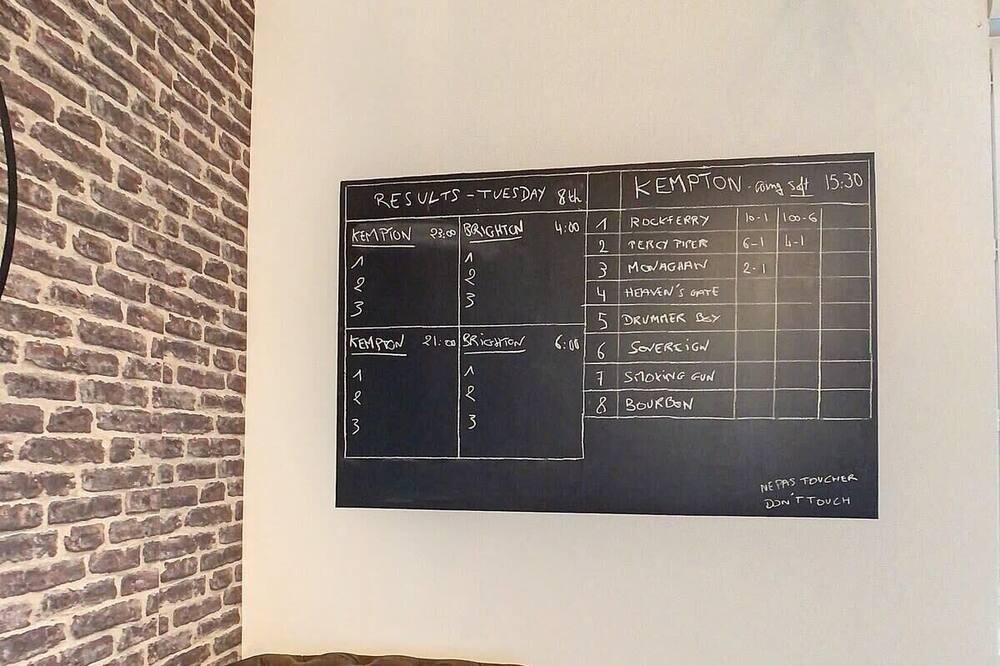 RESULTS - TUESDAY 8th
KEMPTON 23:00
1
2
3
BRIGHTON 4:00
1
2
3
KEMPTON 21:00
1
2
3
BRIGHTON 6:00
1
2
3
KEMPTON - Going Soft 15:30
1 ROCKFERRY 10-1 100-6
2 PERCY PIPER 6-1 4-1
3 MONAGHAN 2-1
4 HEAVEN'S GATE
5 DRUMMER BOY
6 SOVEREIGN
7 SMOKING GUN
8 BOURBON
NE PAS TOUCHER
DON'T TOUCH